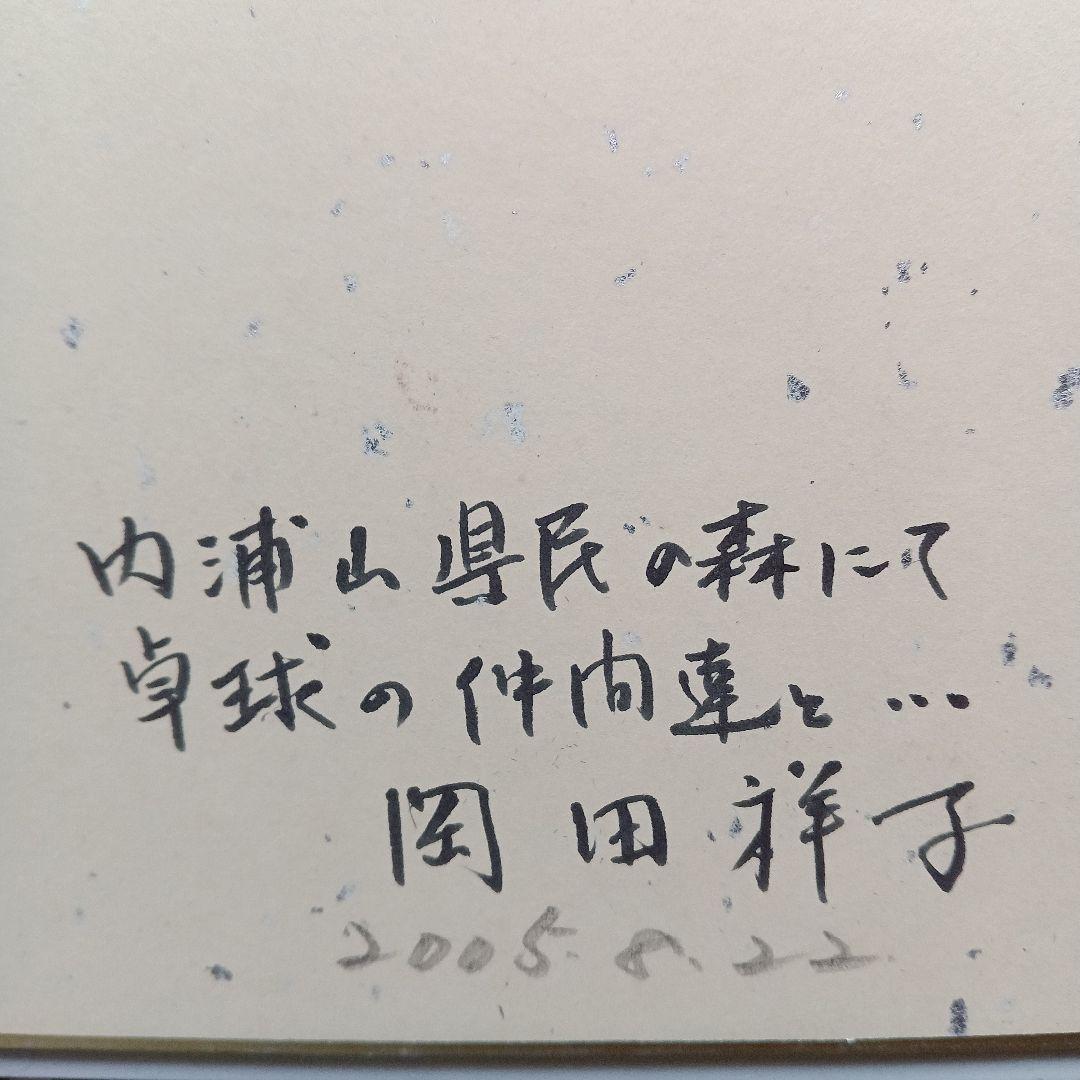 内浦山県民の森にて
卓球の仲間達と…
岡田祥子
2005.8.22